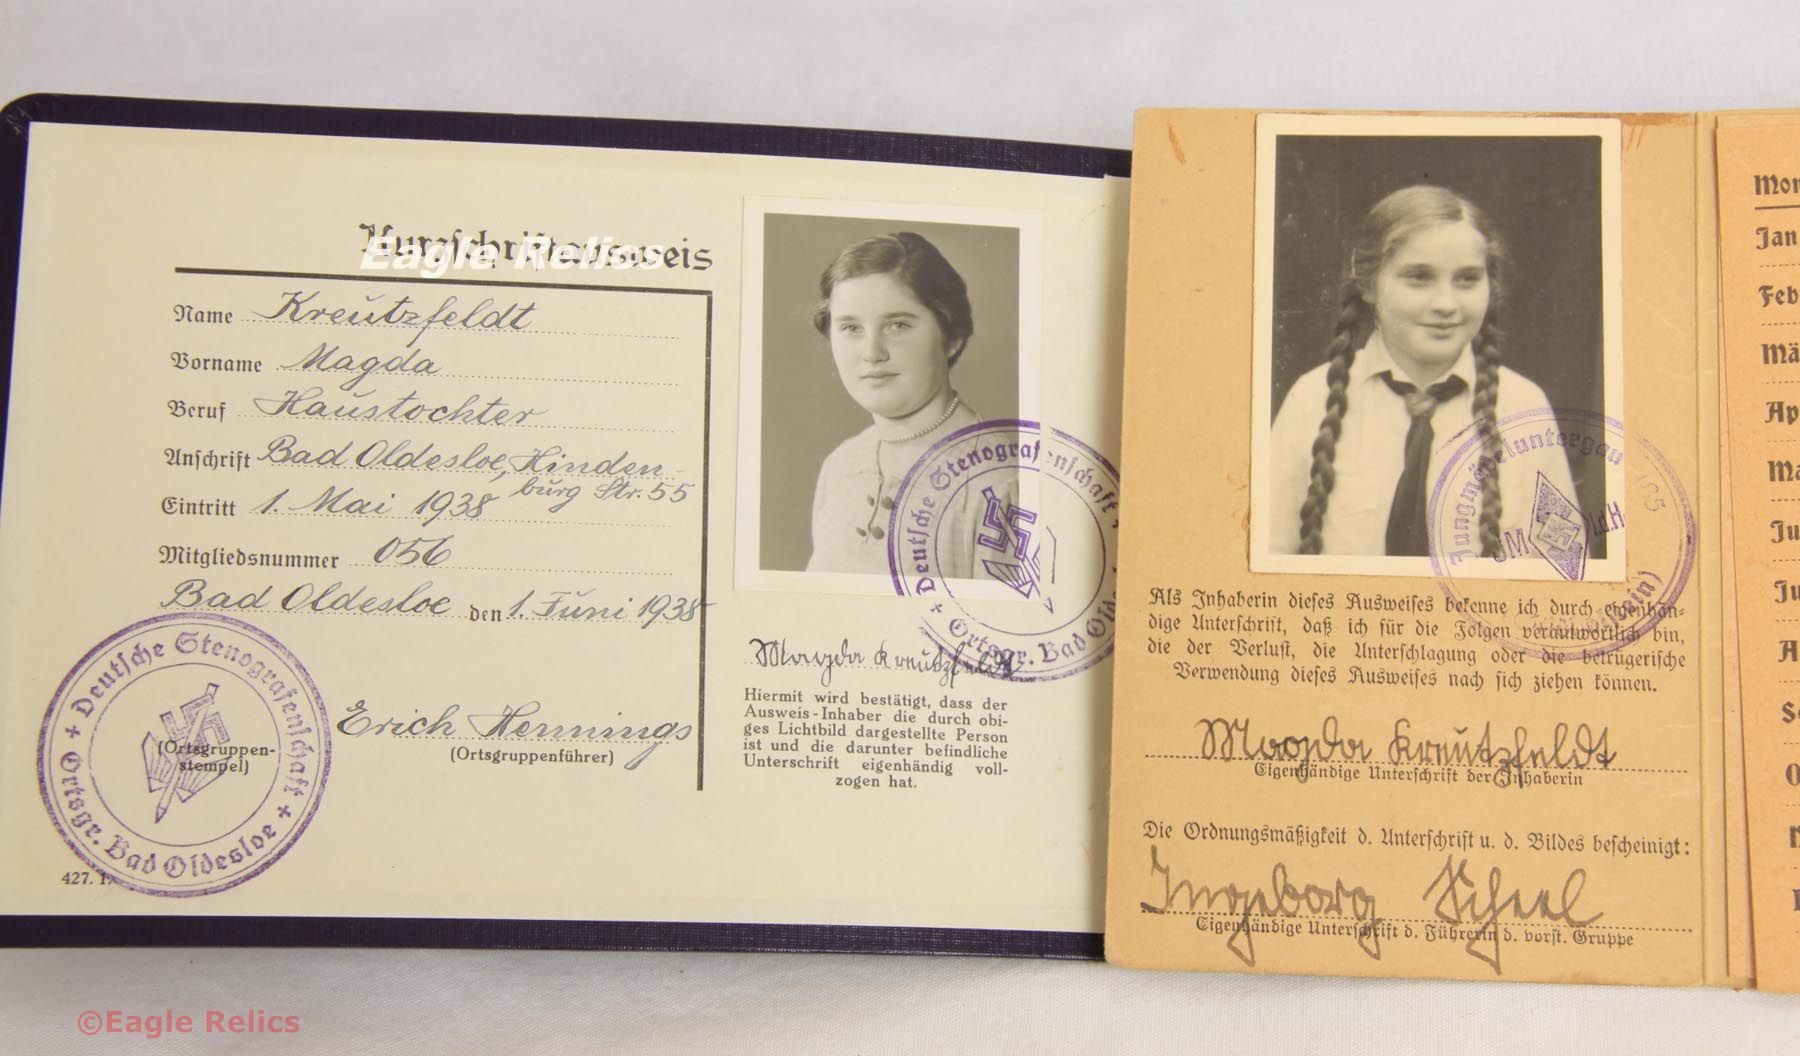 Kurzschriftausweis
Eagle Relics
Name Kreutzfeldt
Vorname Magda
Beruf Haustochter
Anschrift Bad Oldesloe, Hinden-
burg Str. 55
Eintritt 1. Mai 1938
Mitgliedsnummer 056
Bad Oldesloe den 1. Juni 1938
Erich Hennings
(Ortsgruppenführer)
(Ortsgruppen-
stempel)
+ Deutsche Stenografenschaft +
Ortsgr. Bad Oldesloe
427.
Deutsche Stenografenschaft
+ Ortsgr. Bad Oldesloe
Magda Kreutzfeldt
Hiermit wird bestätigt, dass der
Ausweis-Inhaber die durch obi-
ges Lichtbild dargestellte Person
ist und die darunter befindliche
Unterschrift eigenhändig voll-
zogen hat.
Jungmädeluntergau
JM
i.d.H.J.
Als Inhaberin dieses Ausweises bekenne ich durch eigenhän-
dige Unterschrift, daß ich für die Folgen verantwortlich bin,
die der Verlust, die Unterschlagung oder die betrügerische
Verwendung dieses Ausweises nach sich ziehen können.
Magda Kreutzfeldt
Eigenhändige Unterschrift der Inhaberin
Die Ordnungsmäßigkeit d. Unterschrift u. d. Bildes bescheinigt:
Ingeborg Scheel
Eigenhändige Unterschrift d. Führerin d. vorst. Gruppe
Mon
Jan
Feb
Mä
Ap
Ma
Ju
Ju
A
Se
O
©Eagle Relics